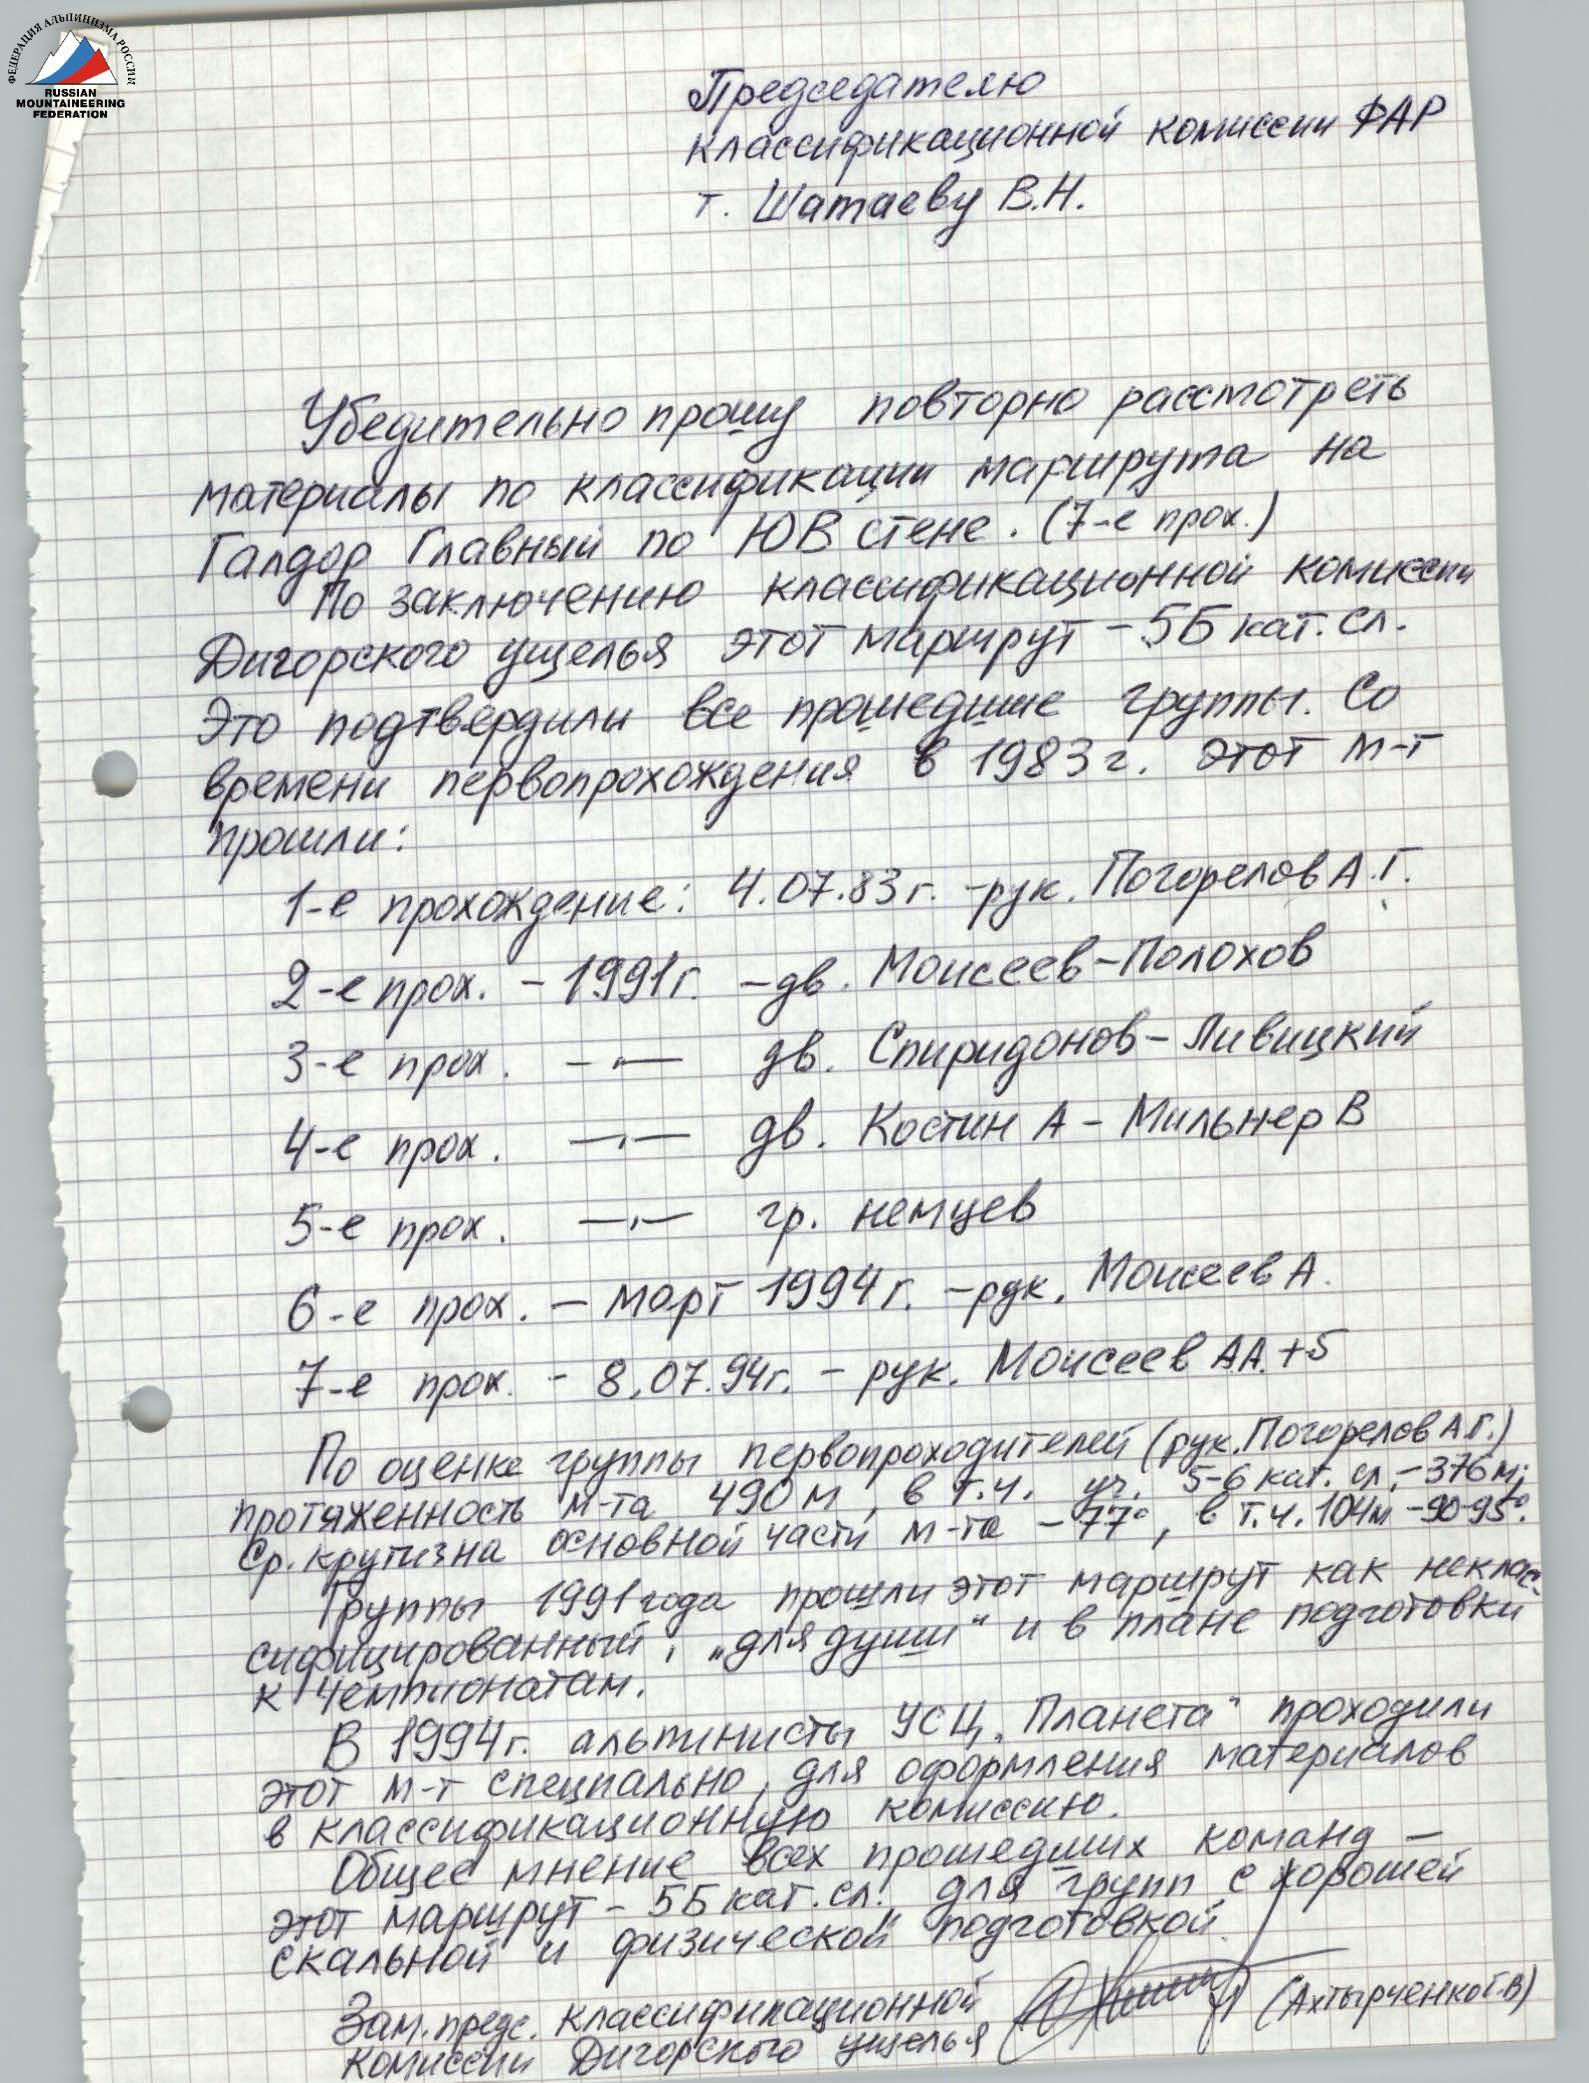 ФЕДЕРАЦИЯ АЛЬПИНИЗМА РОССИИ
RUSSIAN
MOUNTAINEERING
FEDERATION
Председателю
классификационной комиссии ФАР
т. Шатаеву В.Н.
Убедительно прошу повторно рассмотреть
материалы по классификации маршрута на
Галдор Главный по ЮВ стене. (7-е прох.)
По заключению классификационной комиссии
Дигорского ущелья этот маршрут – 5Б кат. сл.
Это подтвердили все прошедшие группы. Со
времени первопрохождения в 1983 г. этот м-т
прошли:
1-е прохождение: 4.07.83 г. - рук. Погорелов А.Г.
2-е прох. – 1991 г. – дв. Моисеев – Полохов
3-е прох. –„– дв. Спиридонов – Ливицкий
4-е прох. –„– дв. Костин А – Мильнер В
5-е прох. –„– гр. немцев
6-е прох. – март 1994 г. – рук. Моисеев А.
7-е прох. – 8.07.94 г. – рук. Моисеев А.А. + 5
По оценке группы первопроходителей (рук. Погорелов А.Г.)
протяженность м-та 490 м, в т.ч. уч. 5-6 кат. сл. – 376 м;
Ср. крутизна основной части м-та – 77°, в т.ч. 104 м – 90-95°.
Группы 1991 года прошли этот маршрут как неклас-
сифицированный, „для души" и в плане подготовки
к чемпионатам.
В 1994 г. альпинисты УСЦ „Планета" проходили
этот м-т специально, для оформления материалов
в классификационную комиссию.
Общее мнение всех прошедших команд –
этот маршрут – 5Б кат. сл. для групп с хорошей
скальной и физической подготовкой.
Зам. предс. классификационной
комиссии Дигорского ущелья (Ахтырченко Г.В)